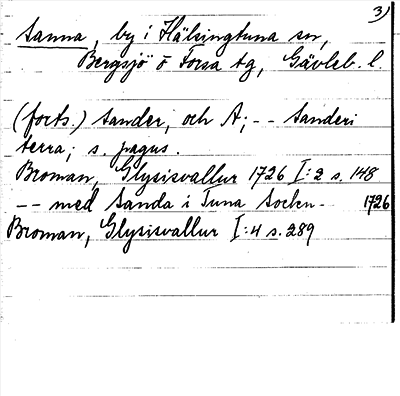 3)
Sanna, by i Hälsingtuna sn,
Bergsjö o Forsa tg, Gävleb. l.
(forts.) Sander, och A; -- Sanderi
terra; s. pagus.
Broman, Glysisvallur 1726 I:2 s. 148
-- med Sanda i Tuna Socken- 1726
Broman, Glysisvallur I:4 s. 289